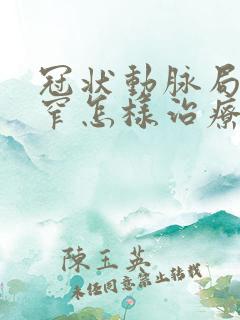 冠狀動脉局
窄怎樣治療
陳玉英
未经同意禁止转载